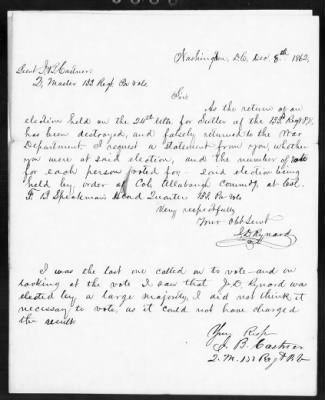 Washington, D.C. Dec. 8th 1862.
Lieut J B Castner
Q. Master 133 Regt Pa Vols
Sir
As the return of an
election held on the 24th ulto. for Sutler of the 133d Regt P.V.
has been destroyed, and falsely returned to the War
Department. I request a statement from you, whether
you were at said election, and the number of vote
for each person voted for - said election being
held by order of Col. Allabaugh Commdg, at Col.
F. B. Speakman's Head Quarters 133 Pa Vols
Very respectfully
Your Obt Servt
J. D. Rynard
I was the last one called on to vote - and on
looking at the vote I saw that J. D. Rynard was
elected by a large majority, I did not think it
necessary to vote, as it could not have changed
the result
Very Resp
J. B. Castner
Q. M. 133 Regt P.V.